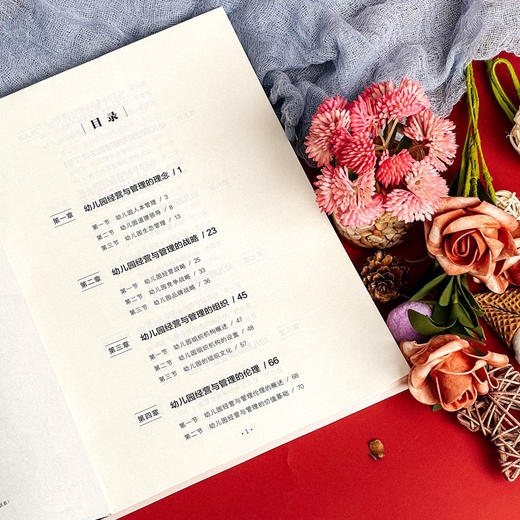 目录
第一章 幼儿园经营与管理的理念 / 1
第一节 幼儿园人本管理 / 3
第二节 幼儿园道德领导 / 8
第三节 幼儿园生态管理 / 13
第二章 幼儿园经营与管理的战略 / 23
第一节 幼儿园经营战略 / 25
第二节 幼儿园竞争战略 / 33
第三节 幼儿园品牌战略 / 36
第三章 幼儿园经营与管理的组织 / 45
第一节 幼儿园组织机构概述 / 47
第二节 幼儿园组织机构的设置 / 48
第三节 幼儿园的组织文化 / 57
第四章 幼儿园经营与管理的伦理 / 66
第一节 幼儿园经营与管理伦理的概述 / 68
第二节 幼儿园经营与管理的价值基础 / 70
· 1 ·